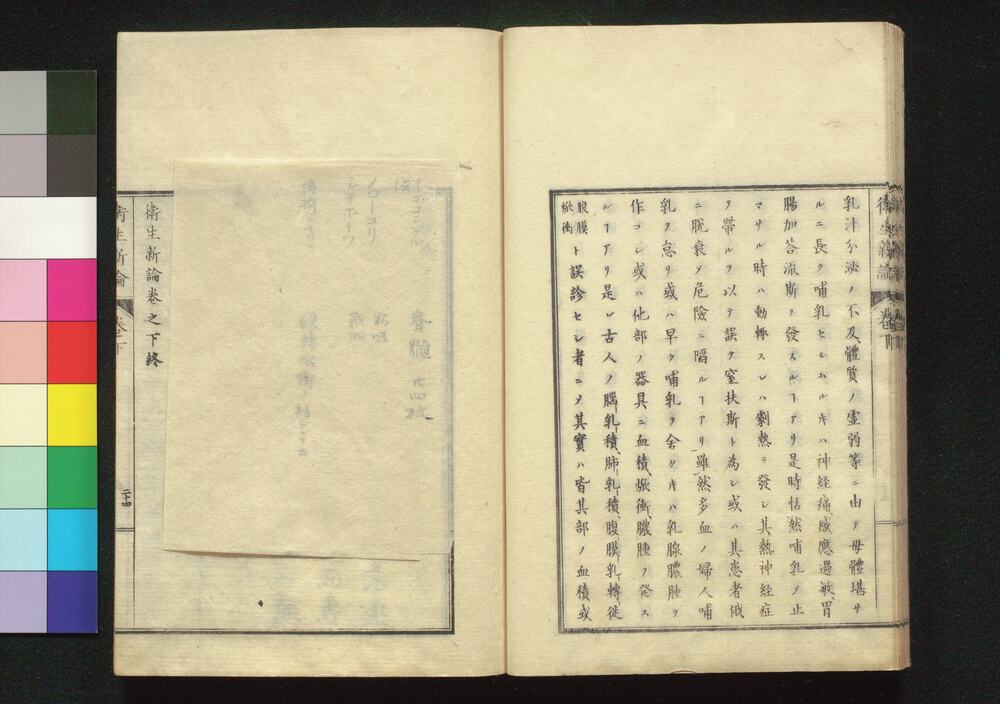 乳汁分泌ノ不及、體質ノ虚弱等ニ由テ母體堪サ
ルニ長ク哺乳セシムルキハ神経痛、感應過敏、胃
腸加荅流斯ヲ發スルヿアリ是時怙然哺乳ヲ止
マサル時ハ動輙スレハ劇熱ヲ發シ其熱神経症
ヲ帶ルヲ以テ誤テ窒扶斯ト為シ或ハ其患者俄
ニ脱衰メ危險ニ陷ルヿアリ雖然多血ノ婦人哺
乳ヲ怠リ或ハ早ク哺乳ヲ舍クキハ乳腺膿腫ヲ
作コシ或ハ他部ノ器具ニ血積、焮衝、膿腫ヲ発ス
ルヿアリ是レ古人ノ腦乳積、肺乳積、腹膜乳轉徙
腹膜焮衝ト誤診セシ者ニメ其實ハ皆其部ノ血積或
衛生新論 卷下
脊髓 廿四枚
衛生新論卷之下終
衛生新論 卷下 二十四